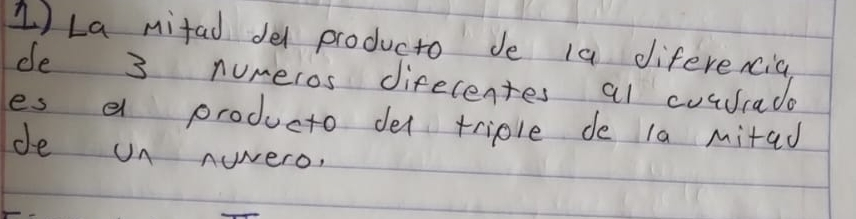 1.) La mitad del producto de la diferencia
de 3 numeros diferentes al cuadrado
es el producto del triple de la mitad
de un numero.